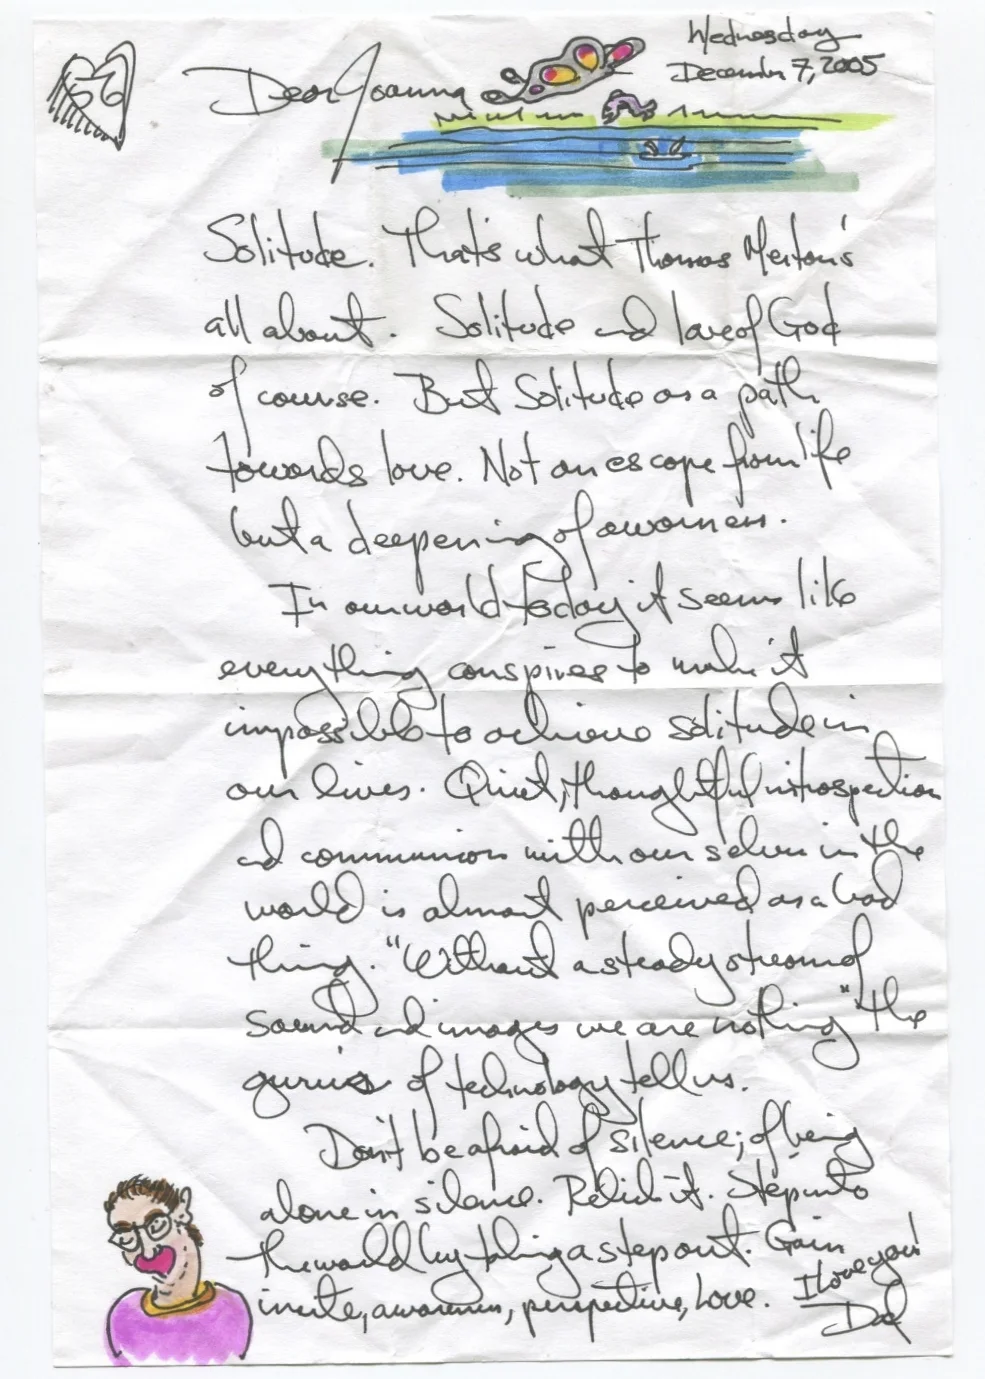 56
Wednesday
December 7, 2005
Dear Joanna
Solitude. That's what Thomas Merton's
all about. Solitude and love of God
of course. But Solitude as a path
towards love. Not an escape from life
but a deepening of awareness.
In our world today it seems like
everything conspires to make it
impossible to achieve solitude in
our lives. Quiet, thoughtful introspection
and communion with our selves in the
world is almost perceived as a bad
thing. "Without a steady stream of
sound and images we are nothing" the
gurus of technology tell us.
Don't be afraid of silence; of being
alone in silence. Relish it. Step into
the world by taking a step out. Gain
insite, awareness, perspective, Love.
I love you!
Dad